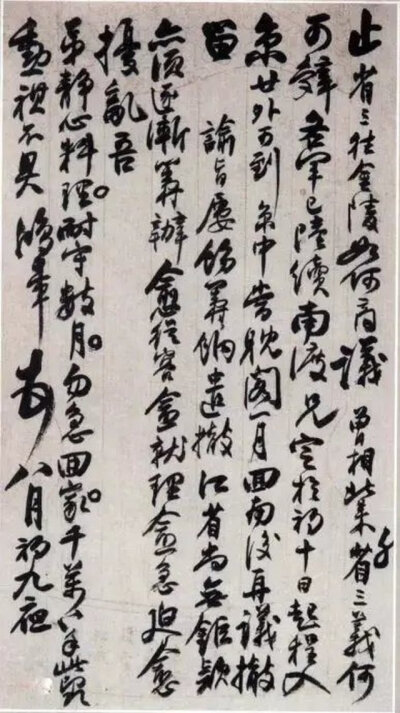 止省三往金陵如何商議曾相此省三義何
可辭各軍已陸續南渡兄定於初十日起程入
京廿外可到京中耽閣一月回南後再議撤
留諭旨屢飭籌餉遣撤江省尚無鉅款
亦須逐漸籌辦愈從容愈就理愈急迫愈
擾亂吾
弟靜心料理耐守數月勿急回家千萬手此
勛祺不具鴻章八月初九夜